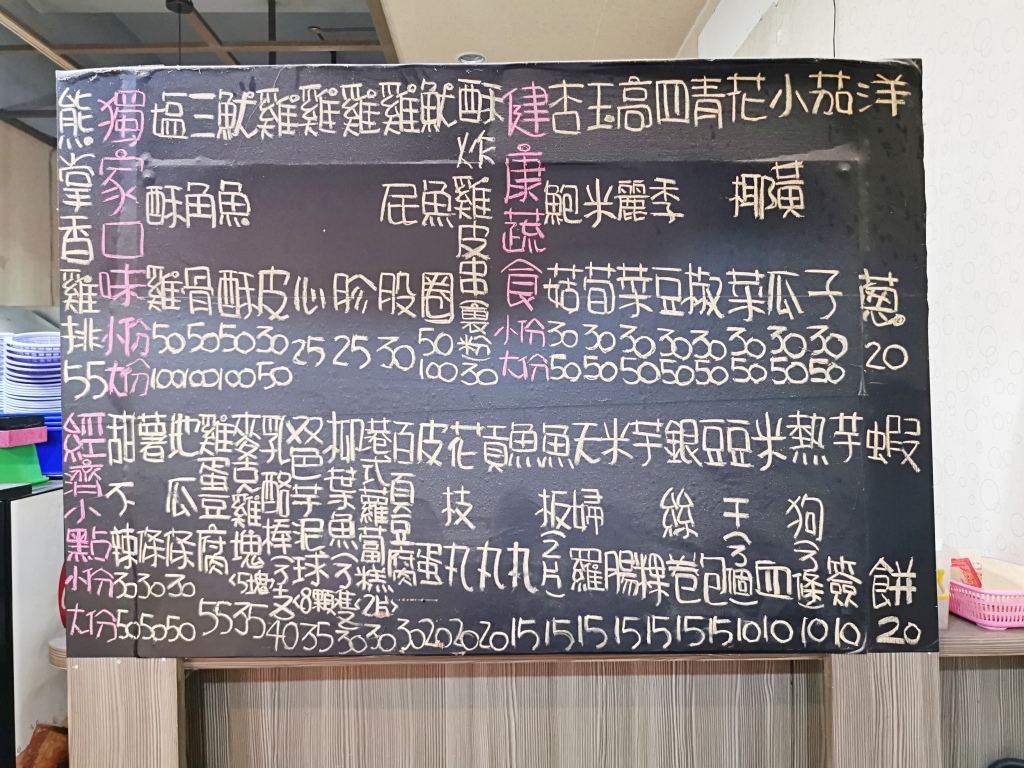 熊掌香雞排 55
獨家口味 小份 大份
塩酥雞 50 100
三角骨 50 100
魷魚酥 50 100
雞皮 30 50
雞心 25
雞肣 25
雞屁股 30
魷魚圈 50 100
酥炸雞皮串(裹粉) 30
健康蔬食 小份 大份
杏鮑菇 30 50
玉米筍 30 50
高麗菜 30 50
四季豆 30 50
青椒 30 50
花椰菜 30 50
小黃瓜 30 50
茄子 30 50
洋蔥 20
經濟小點 小份 大份
甜不辣 30 50
薯條 30 50
地瓜條 30 50
雞蛋豆腐 55
麥克雞塊(5塊) 35
乳酪棒(3支) 40
双色芋泥球(8顆) 35
柳葉魚(3隻) 30
港式蘿蔔糕(2片) 30
百頁豆腐 30
皮蛋 20
花枝丸 20
貢丸 20
魚丸 15
魚板(2片) 15
天婦羅 15
米腸 15
芋粿 15
銀絲卷 15
豆包 15
豆干(3個) 10
米血 10
熱狗(3條) 10
芋簽 10
蝦餅 20